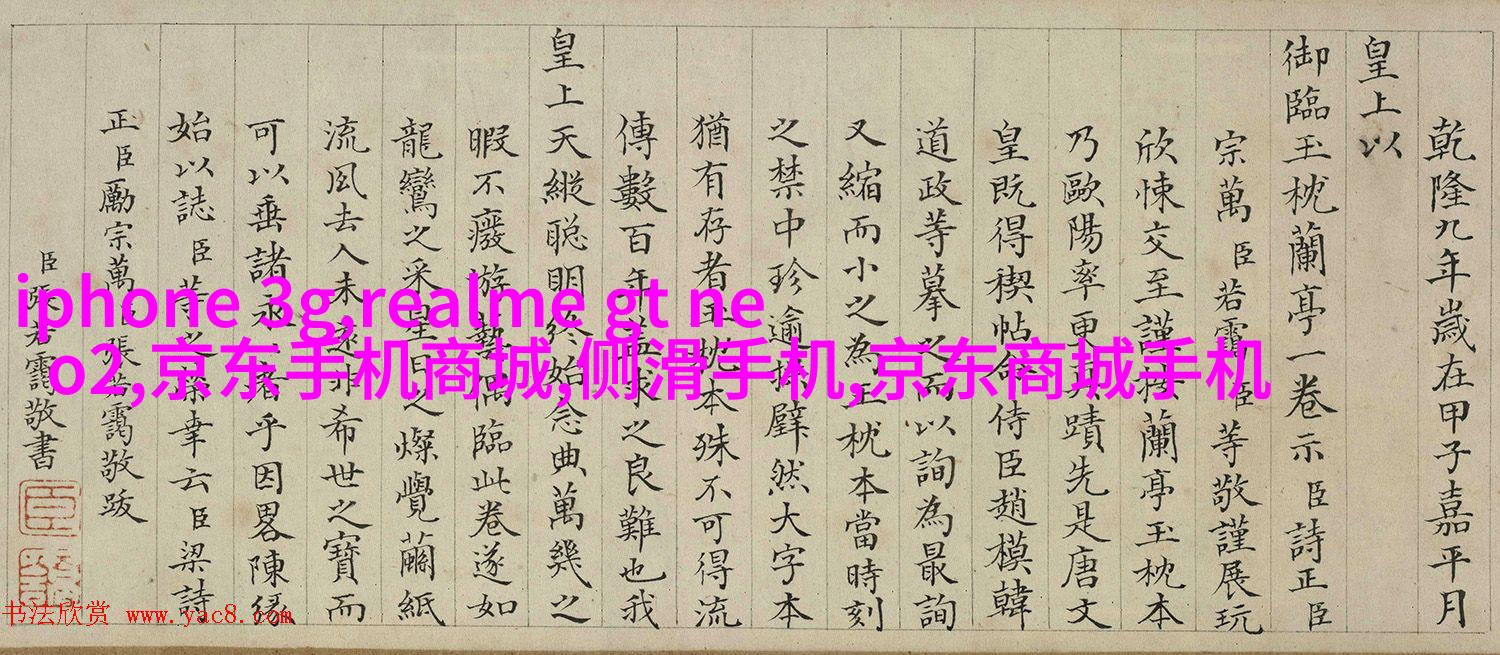 乾隆九年歲在甲子嘉平月
皇上以
御臨玉枕蘭亭一卷示臣詩正臣
宗萬臣若靄臣等敬謹展玩
欣悚交至謹按蘭亭玉枕本
乃歐陽率更真蹟先是唐文
皇既得禊帖命侍臣趙模韓
道政等摹之而以詢為最詢
又縮而小之為玉枕本當時刻
之禁中珍逾拱璧然大字本
猶有存者玉枕本殊不可得流
傳數百年蓋求之良難也我
皇上天縱聰明終始念典萬幾之
暇不廢游藝偶臨此卷遂如
龍鸞之采星日之燦覺繭紙
流風去人未遠非希世之寶而
可以垂諸者乎因畧陳緣
始以誌臣等之榮幸云臣梁詩
正臣勵宗萬臣張若靄敬跋
臣張若靄敬書
臣
iphone 3g,realme gt ne
o2,京东手机商城,侧滑手机,京东商城手机
书法欣赏 www.yac8.com